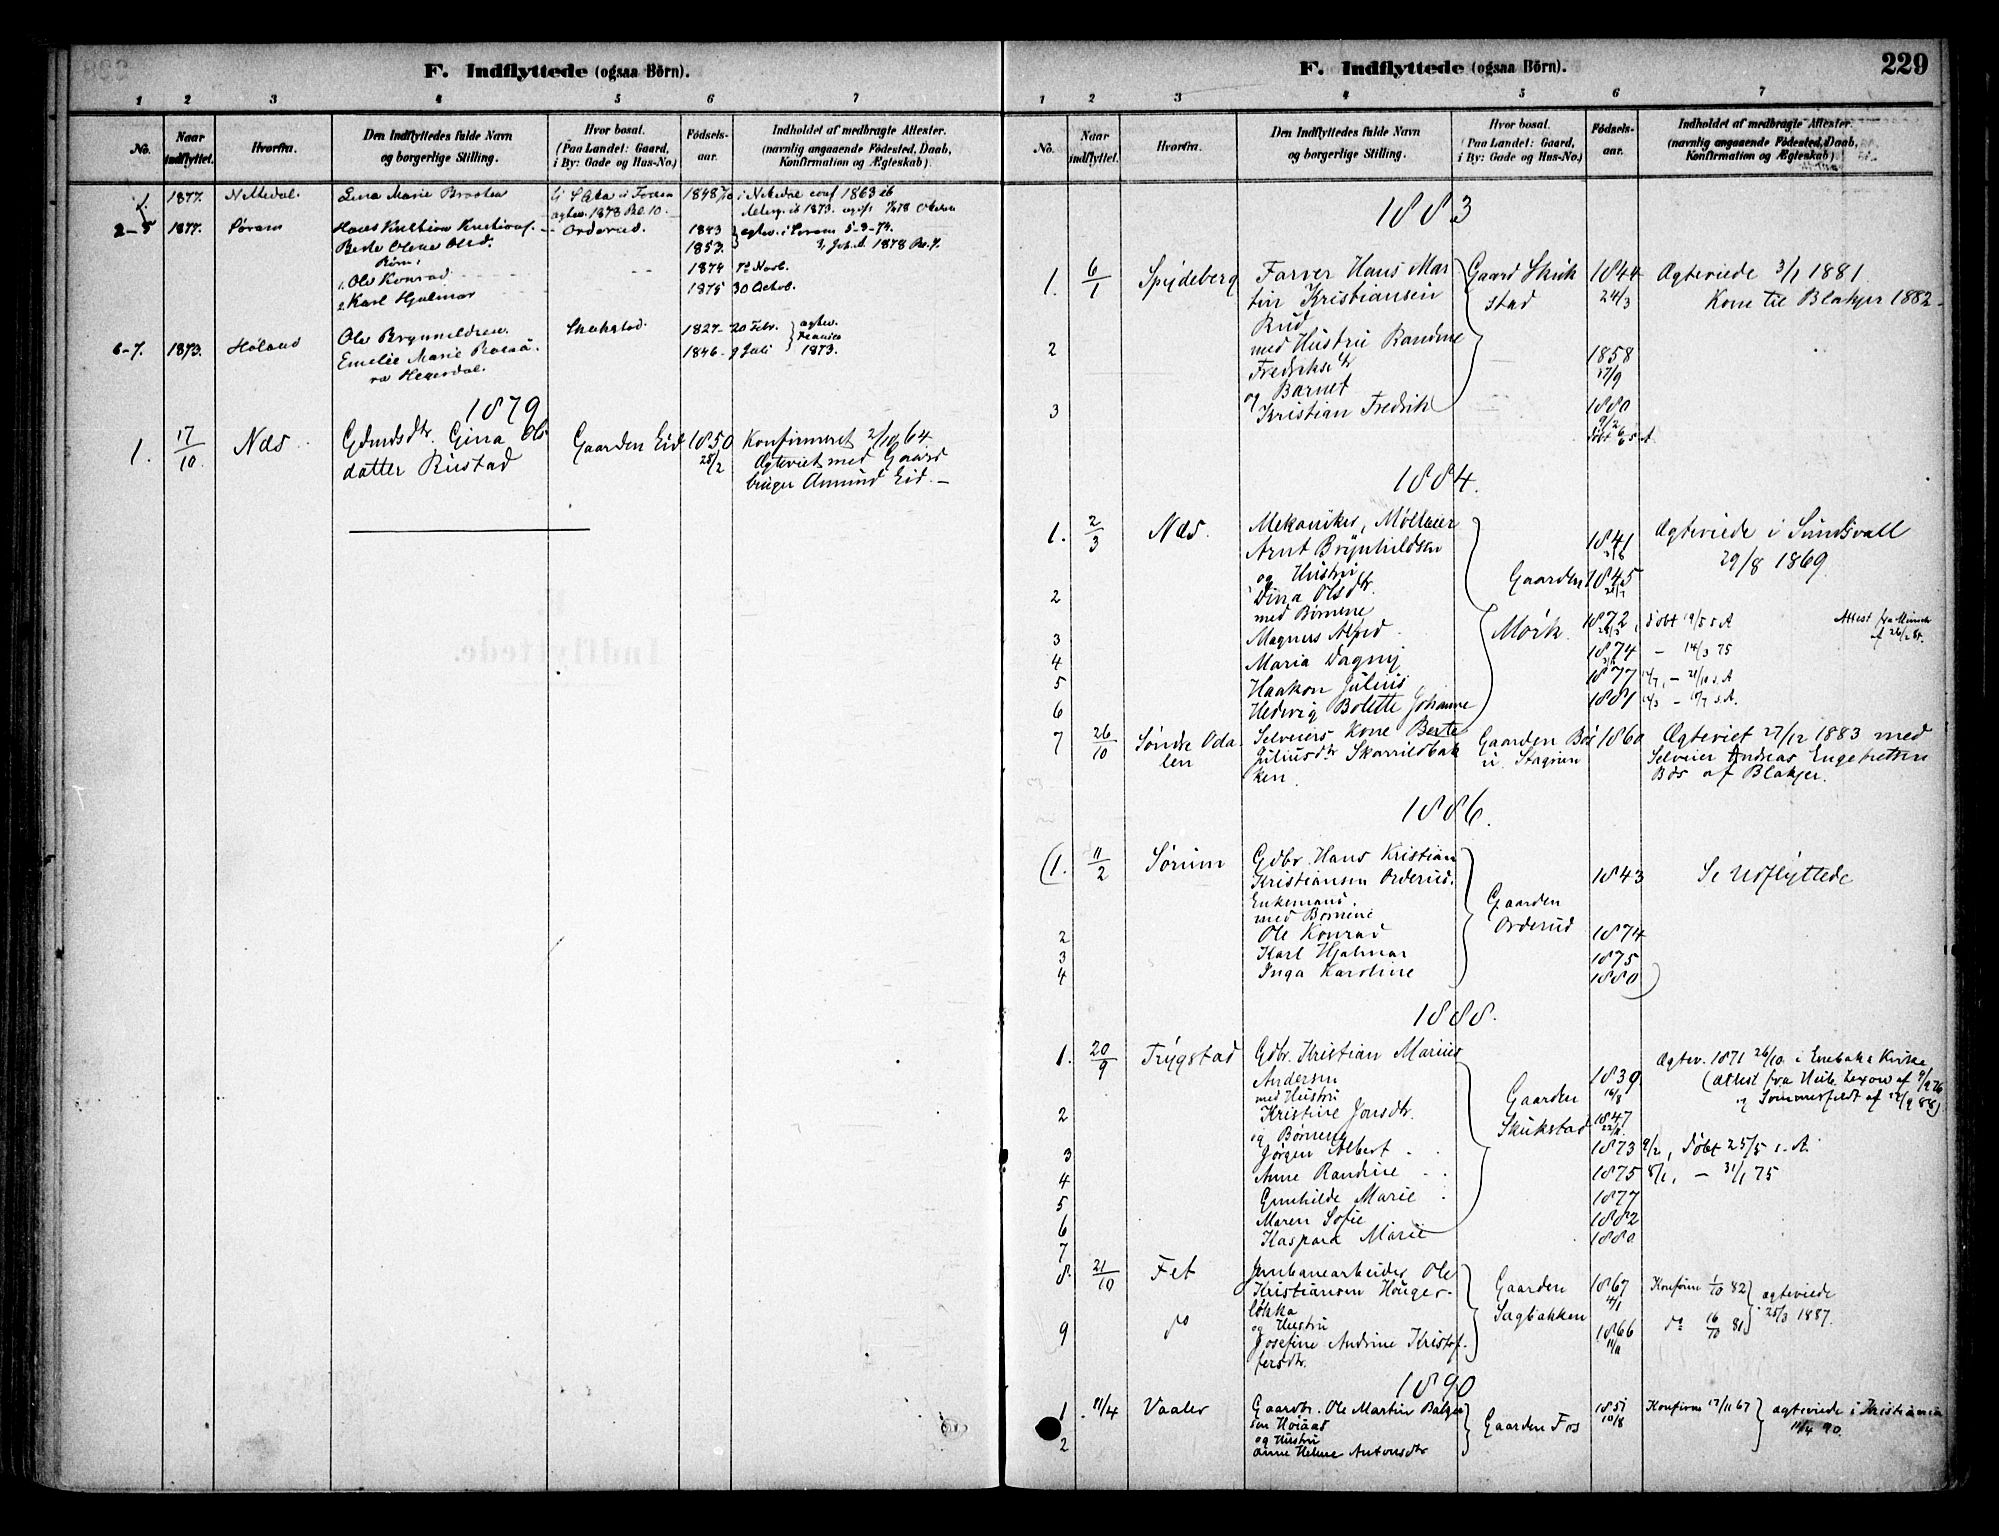 F. Indflyttede (ogsaa Börn).
1 2 3 4 5 6 7
No. Naar indflyttet. Hvorfra. Den Indflyttedes fulde Navn og borgerlige Stilling. Hvor bosat. (Paa Landet: Gaard, i By: Gade og Hus-No.) Födsels-aar. Indholdet af medbragte Attester. (navnlig angaaende Födested, Daab, Konfirmation og Ægteskab).
1. 1877. Nittedal Lina Marie Braaten 1848
2-5 1877. Sørum Hans Kristian Kristians. Orderud. 1843 ægtev. i Sørum 5-3-74.
Berte Oline Olsd. 1853.
Børn:
1. Ole Konrad 1874 Novb.
2 Karl Hjalmar 1875 30 Octob.
6-7. 1873. Høland Ole Brynnildsen Skukstad. 1827 - 20 Febr. ægtev.
Emelie Marie 1846 - 9 Juli 1873.
1879
1. 17/10 Næs Gdmdsdtr. Gina Ols Gaarden Eid 1850 Konfirmeret 2/10 64.
datter Rustad 28/2 Ægteviet med Gaard
bruger Amund Eid. —
F. Indflyttede (ogsaa Börn). 229
1 2 3 4 5 6 7
No. Naar indflyttet. Hvorfra. Den Indflyttedes fulde Navn og borgerlige Stilling. Hvor bosat. (Paa Landet: Gaard, i By: Gade og Hus-No.) Födsels-aar. Indholdet af medbragte Attester. (navnlig angaaende Födested, Daab, Konfirmation og Ægteskab).
1883
1. 6/1 Spydeberg Farver Hans Mar Gaard Skuk 1844 Ægteviede 3/1 1881.
tin Kristiansen stad 24/3 Kom til Blakjer 1882
Rud
2 med Hustru Randine 1858
Fredriksdtr 17/9
og Barnet
3 Kristian Fredrik 1880
9/2
1884.
1. 2/3 Næs. Mekaniker, Mølleier 1841 Ægteviede i Sundsvall
Arnt Brynhildsen 29/8 1869.
og Hustru Gaarden 1845
2 Dina Olsdtr.
med Børnene
3 Magnus Alfred Mørk. 1872, døbt 19/5 s. A
4 Maria Dagny 1874 — 14/3 75
5 Haakon Julius 1877 — 21/10 s. A
6 Hedvig Bolette Johanne 1881 — 17/7 s. A.
7 26/10 Søndre Oda Selveiers Kone Berte Gaarden Bøs 1860 Ægteviet 27/12 1883 med
len Juliusdtr Skarrildbak Selveier Andreas Engebretsen
ken. Bøs af Blakjer.
1886.
(1. 11/2 Sørum Gdbr. Hans Kristian
Kristiansen Orderud. 1843 Se Udflyttede
Enkemand. Gaarden
med Børnene Orderud
2 Ole Konrad 1874
3 Karl Hjalmar 1875
4 Inga Karoline 1880)
1888.
1. 20/9 Trygstad Gdbr. Kristian Marius Ægtev. 1871 26/10 i Enebaks Kirke
Andersen 1839
med Hustru Gaarden
2 Kristine Jonsdtr. 1847
og Børnene Skukstad
3 Jørgen Albert 1873 9/2, døbt 25/5 s. A.
4 Anne Randine 1875 8/1, — 31/1 75
5 Gunhilde Marie 1877
6 Maren Sofie 1882
7 Kaspara Marie 1880
8. 21/10 Fet Jernbanearbeider Ole Gaarden 1867 Konfirm 1/10 82 ægteviede
Kristiansen Hauger- Sagbakken 4/1 25/3 1887.
løkka
og Hustru
9 do Josefine Andrine Kristof- 1866 do 16/10 81
fersdtr.
1890
1 11/4 Vaaler Gaardbr. Ole Martin Gaarden Fos 1851 Konfirm 17/11 67 ægteviede i Kristiania
10/8 11/4 90.
og Hustru
2 Anne Helene Antonsdtr